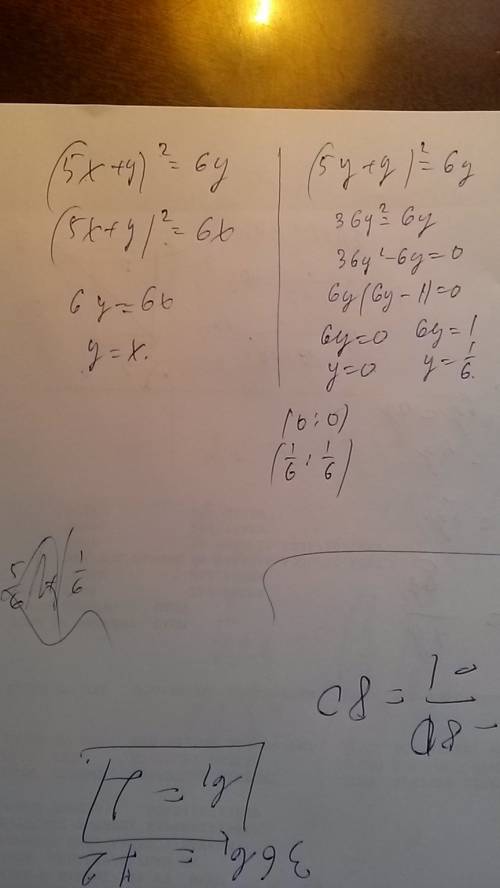 (5x+y)² = 6y
(5x+y)² = 6x
6y = 6x
y = x.
(5y+y)² = 6y
36y² = 6y
36y² - 6y = 0
6y(6y - 1) = 0
6y = 0 6y = 1
y = 0 y = 1/6.
(0; 0)
(1/6; 1/6)
5/6 + 1/6
36b₁ = 72
b₁ = 2